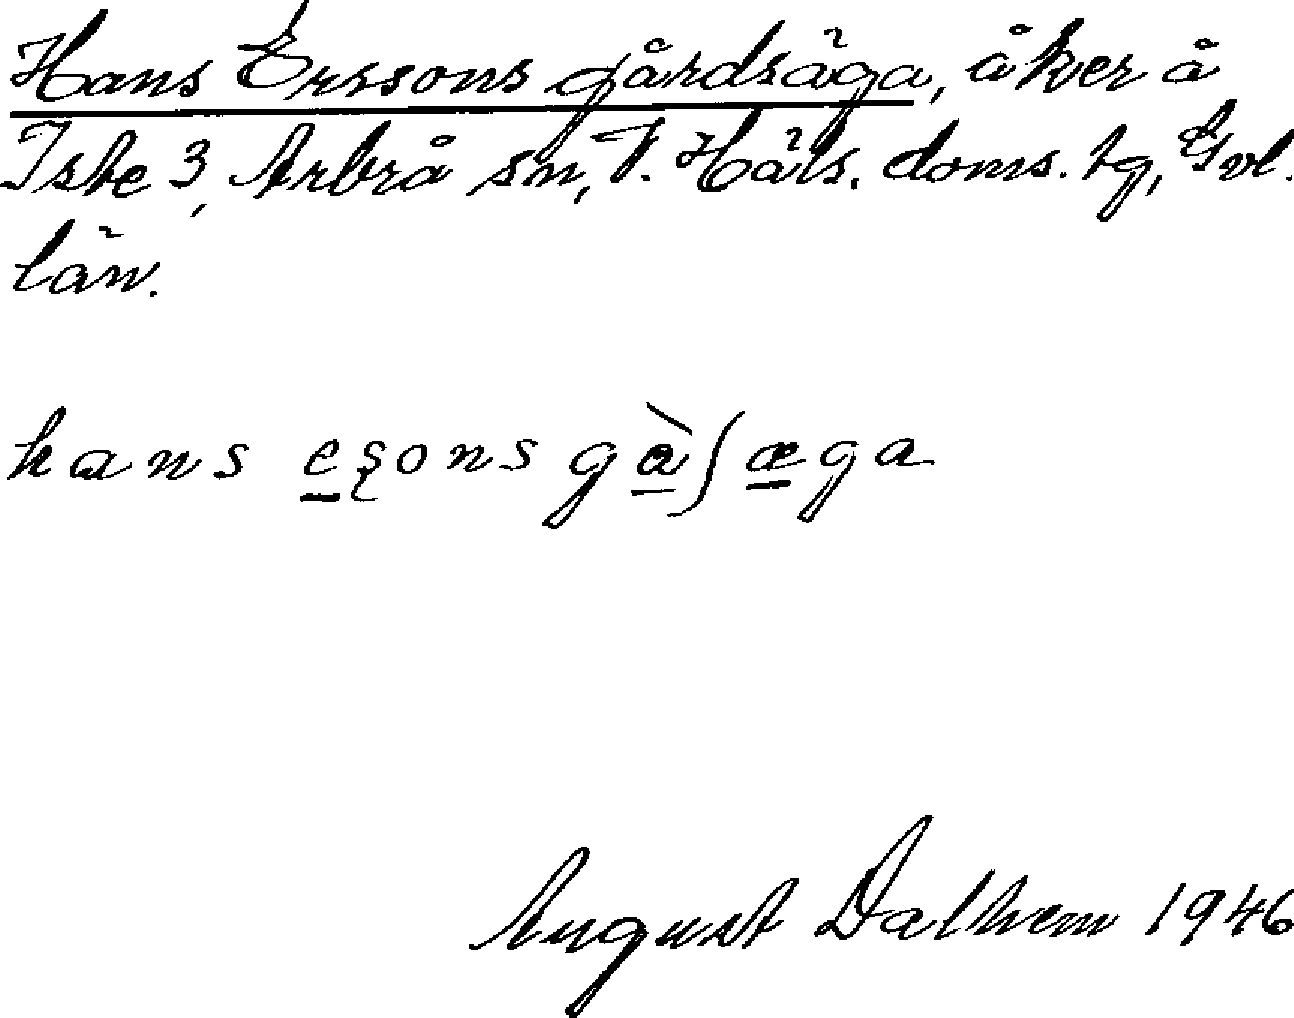 Hans Erssons gårdsäga, åker å
Iste 3, Arbrå sn, V. Häls. doms. tg, Gvl.
län.
hans eşons gàʃæga
August Dalhem 1946